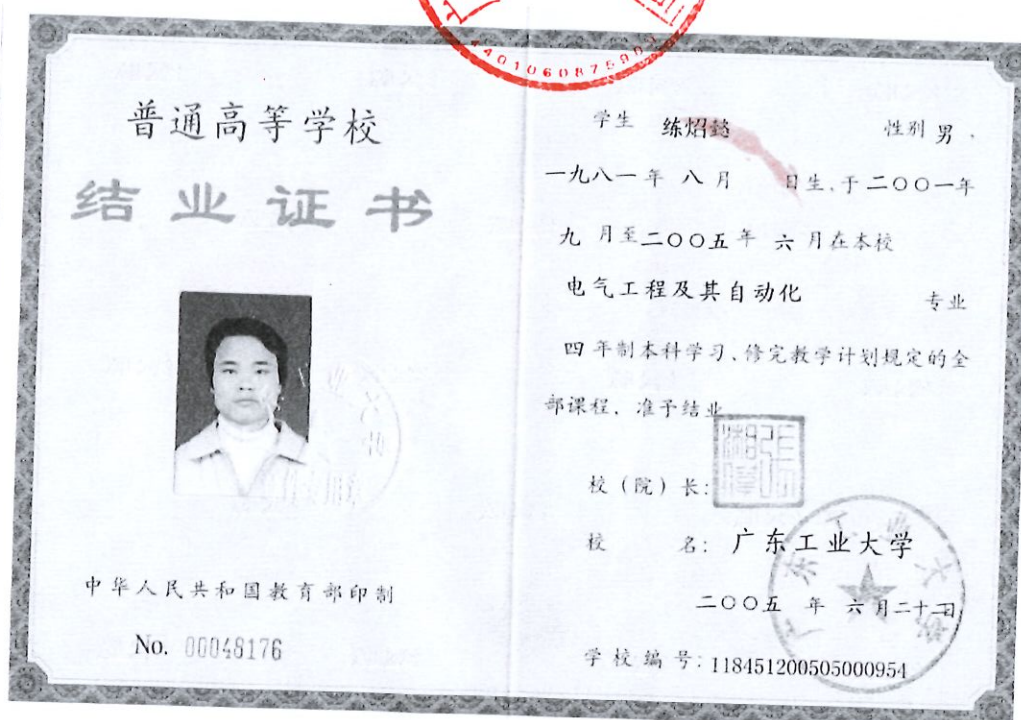 普通高等学校
结业证书
中华人民共和国教育部印制
No. 00048176
4401060875903
学生 练炤懿 性别 男.
一九八一年 八月 日生,于二〇〇一年
九 月至二〇〇五年 六 月在本校
电气工程及其自动化 专业
四 年制本科学习、修完教学计划规定的全
部课程,准予结业
校(院)长:
校 名: 广东工业大学
二〇〇五 年 六月二十二日
学校编号:118451200505000954